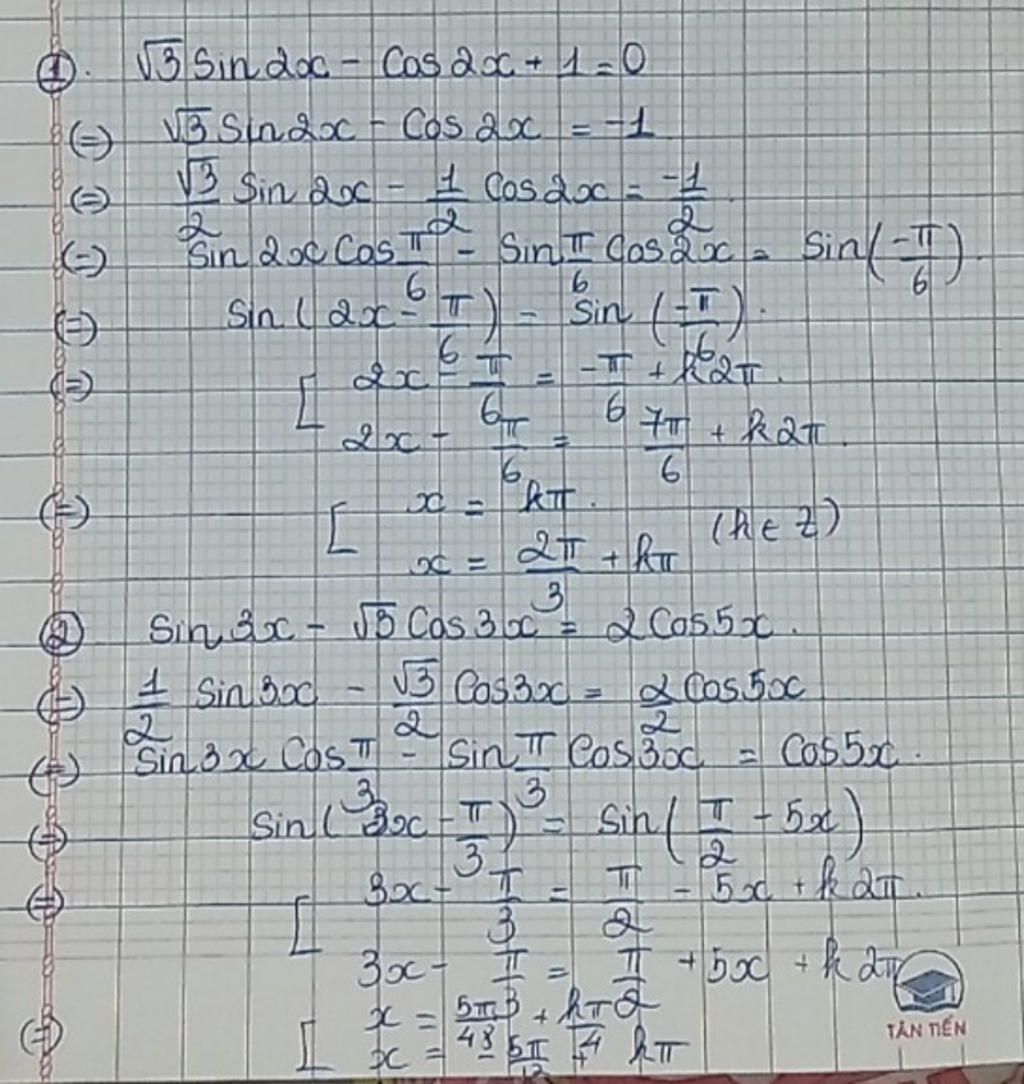 ①. √3 Sin2x - Cos2x + 1 = 0
(=) √3 Sin2x - Cos2x = -1
(=) √3/2 Sin2x - 1/2 Cos2x = -1/2
(=) Sin2x Cos π/6 - Sin π/6 Cos2x = Sin(-π/6).
(=) Sin(2x - π/6) = Sin(-π/6).
(=) [ 2x - π/6 = -π/6 + k2π.
2x - π/6 = 7π/6 + k2π.
(=) [ x = kπ.
x = 2π/3 + kπ (k ∈ Z)
② Sin3x - √3 Cos3x = 2Cos5x.
(=) 1/2 Sin3x - √3/2 Cos3x = 2/2 Cos5x
(=) Sin3x Cos π/3 - Sin π/3 Cos3x = Cos5x.
(=) Sin(3x - π/3) = Sin(π/2 - 5x)
(=) [ 3x - π/3 = π/2 - 5x + k2π.
3x - π/3 = π/2 + 5x + k2π
(=) [ x = 5π/48 + kπ/4
x = -5π/12 + kπ
TÂN TIẾN